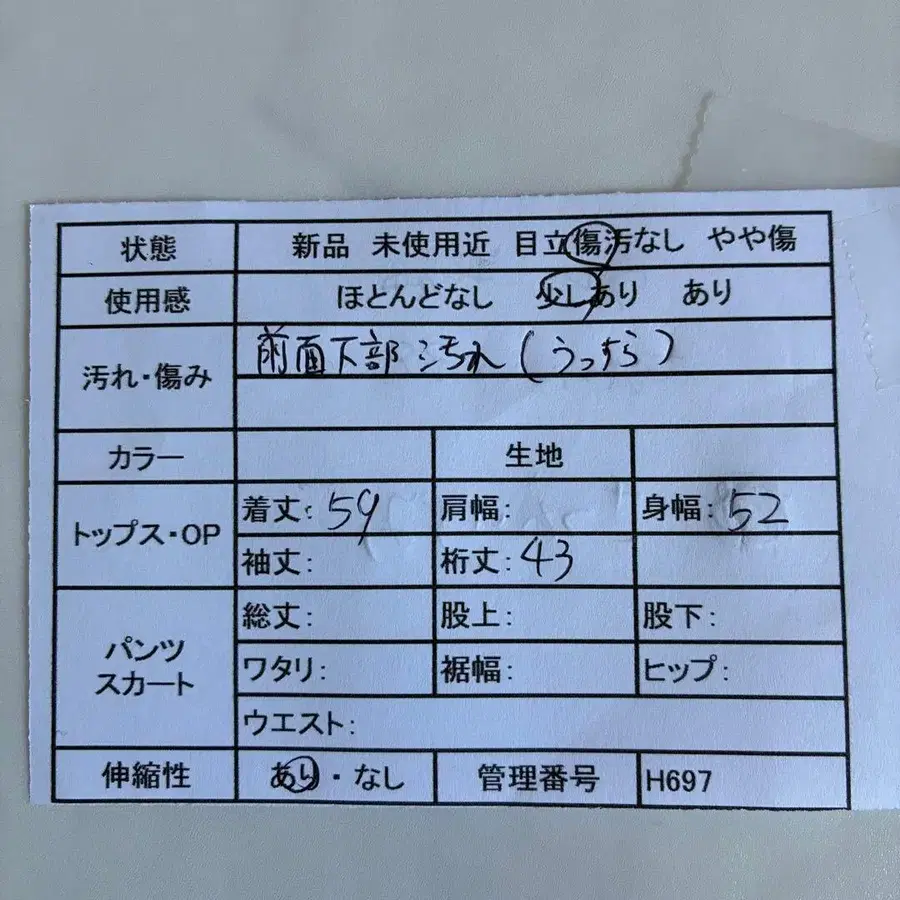 状態 新品 未使用近 目立傷汚なし やや傷
使用感 ほとんどなし 少しあり あり
汚れ・傷み 前面下部汚れ(うっすら)
カラー 生地
トップス・OP 着丈:59 肩幅: 身幅:52
袖丈: 裄丈:43
パンツ
スカート
総丈: 股上: 股下:
ワタリ: 裾幅: ヒップ:
ウエスト:
伸縮性 あり・なし 管理番号 H697